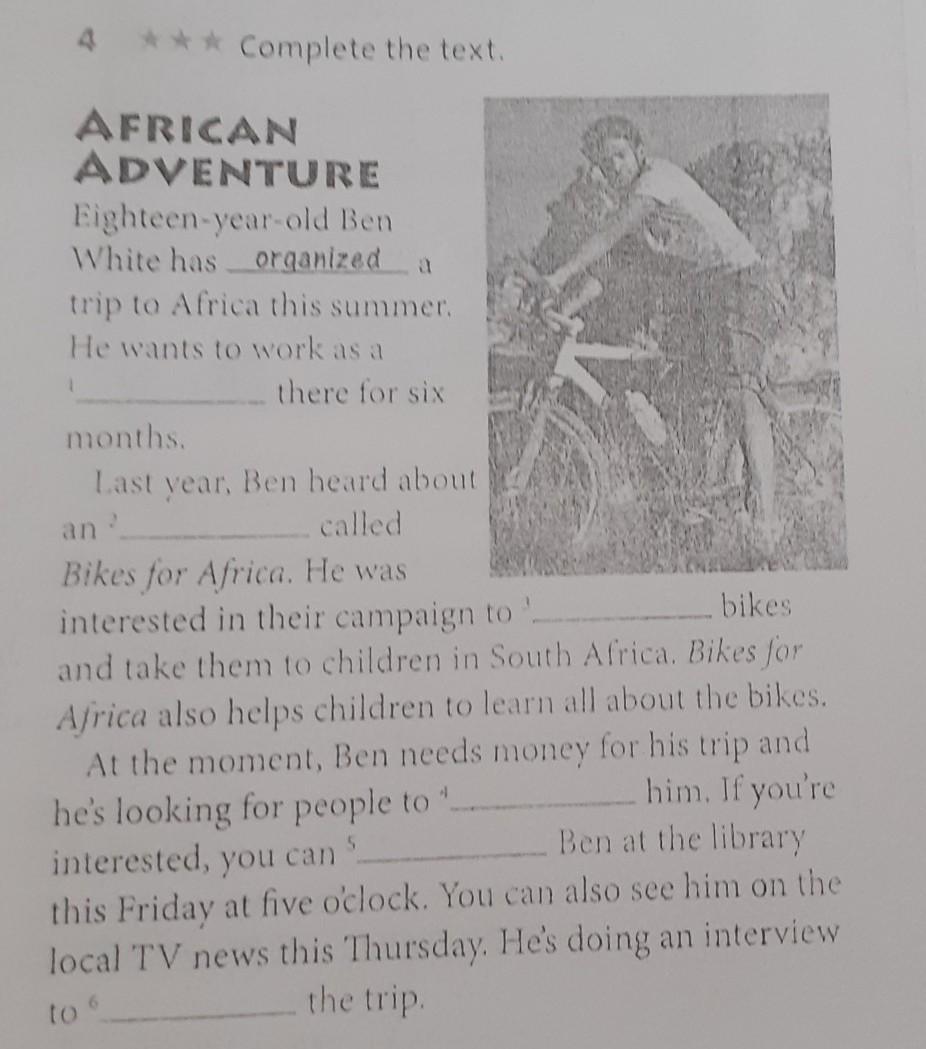 4 ★★★ Complete the text.
AFRICAN
ADVENTURE
Eighteen-year-old Ben
White has organized a
trip to Africa this summer.
He wants to work as a
1__________ there for six
months.
Last year, Ben heard about
an 2__________ called
Bikes for Africa. He was
interested in their campaign to 3__________ bikes
and take them to children in South Africa. Bikes for
Africa also helps children to learn all about the bikes.
At the moment, Ben needs money for his trip and
he's looking for people to 4__________ him. If you're
interested, you can 5__________ Ben at the library
this Friday at five o'clock. You can also see him on the
local TV news this Thursday. He's doing an interview
to 6__________ the trip.